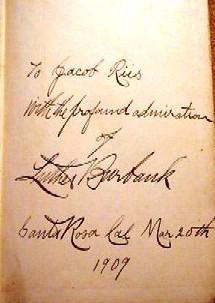 To Jacob Riis
with the profound admiration
of
Luther Burbank
Santa Rosa Cal Mar 20th
1909